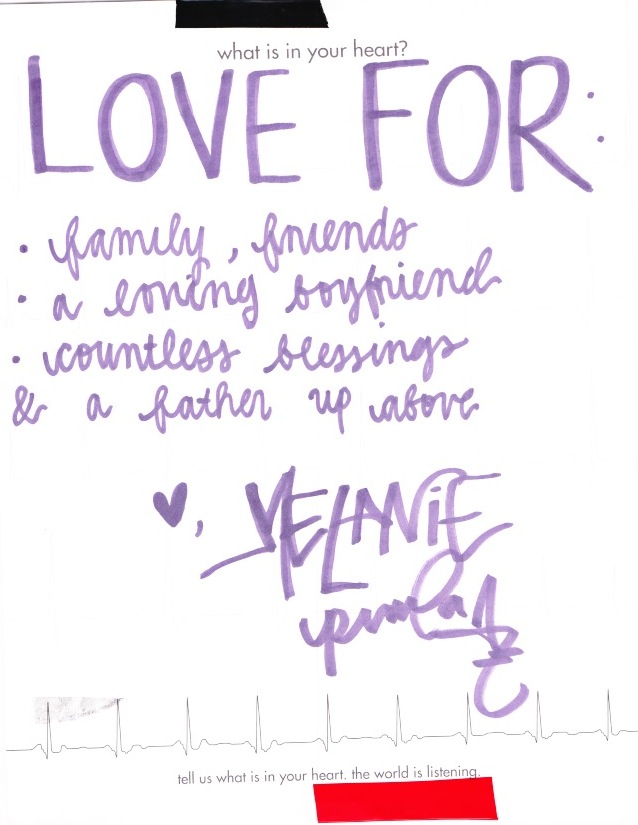 what is in your heart?
LOVE FOR:
• family, friends
• a loving boyfriend
• countless blessings
& a father up above
♥, MELANIE
tell us what is in your heart. the world is listening.